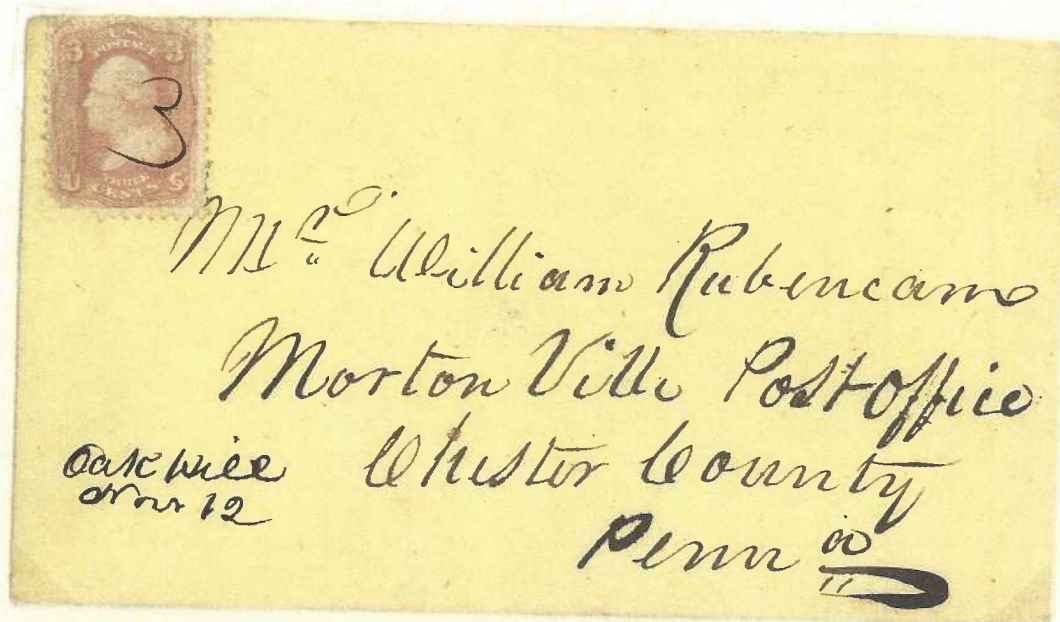 3 U.S. 3
POSTAGE
3
U THREE S
CENTS
Mr. William Rubencam
Morton Ville Post Office
Chester County
Penn a
Oak Hill
Nov 12